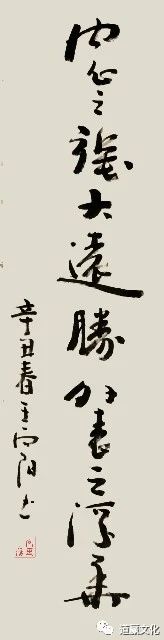 内心之强大远胜外表之浮华
辛丑春王向阳书
垣赢文化